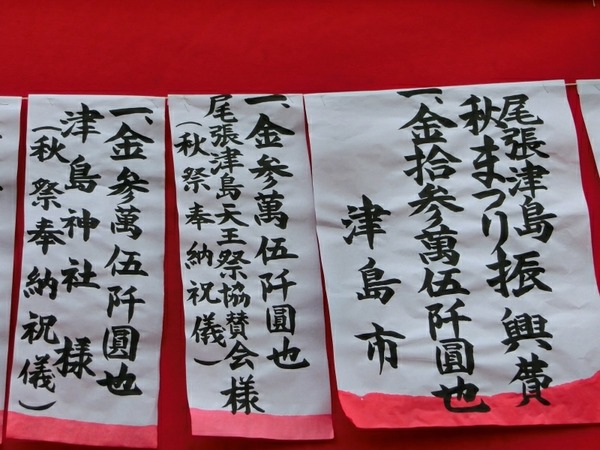 尾張津島
秋まつり振興費
一、金拾参萬伍阡圓也
津島市
一、金参萬伍阡圓也
尾張津島天王祭協賛会様
（秋祭奉納祝儀）
一、金参萬伍阡圓也
津島神社様
（秋祭奉納祝儀）